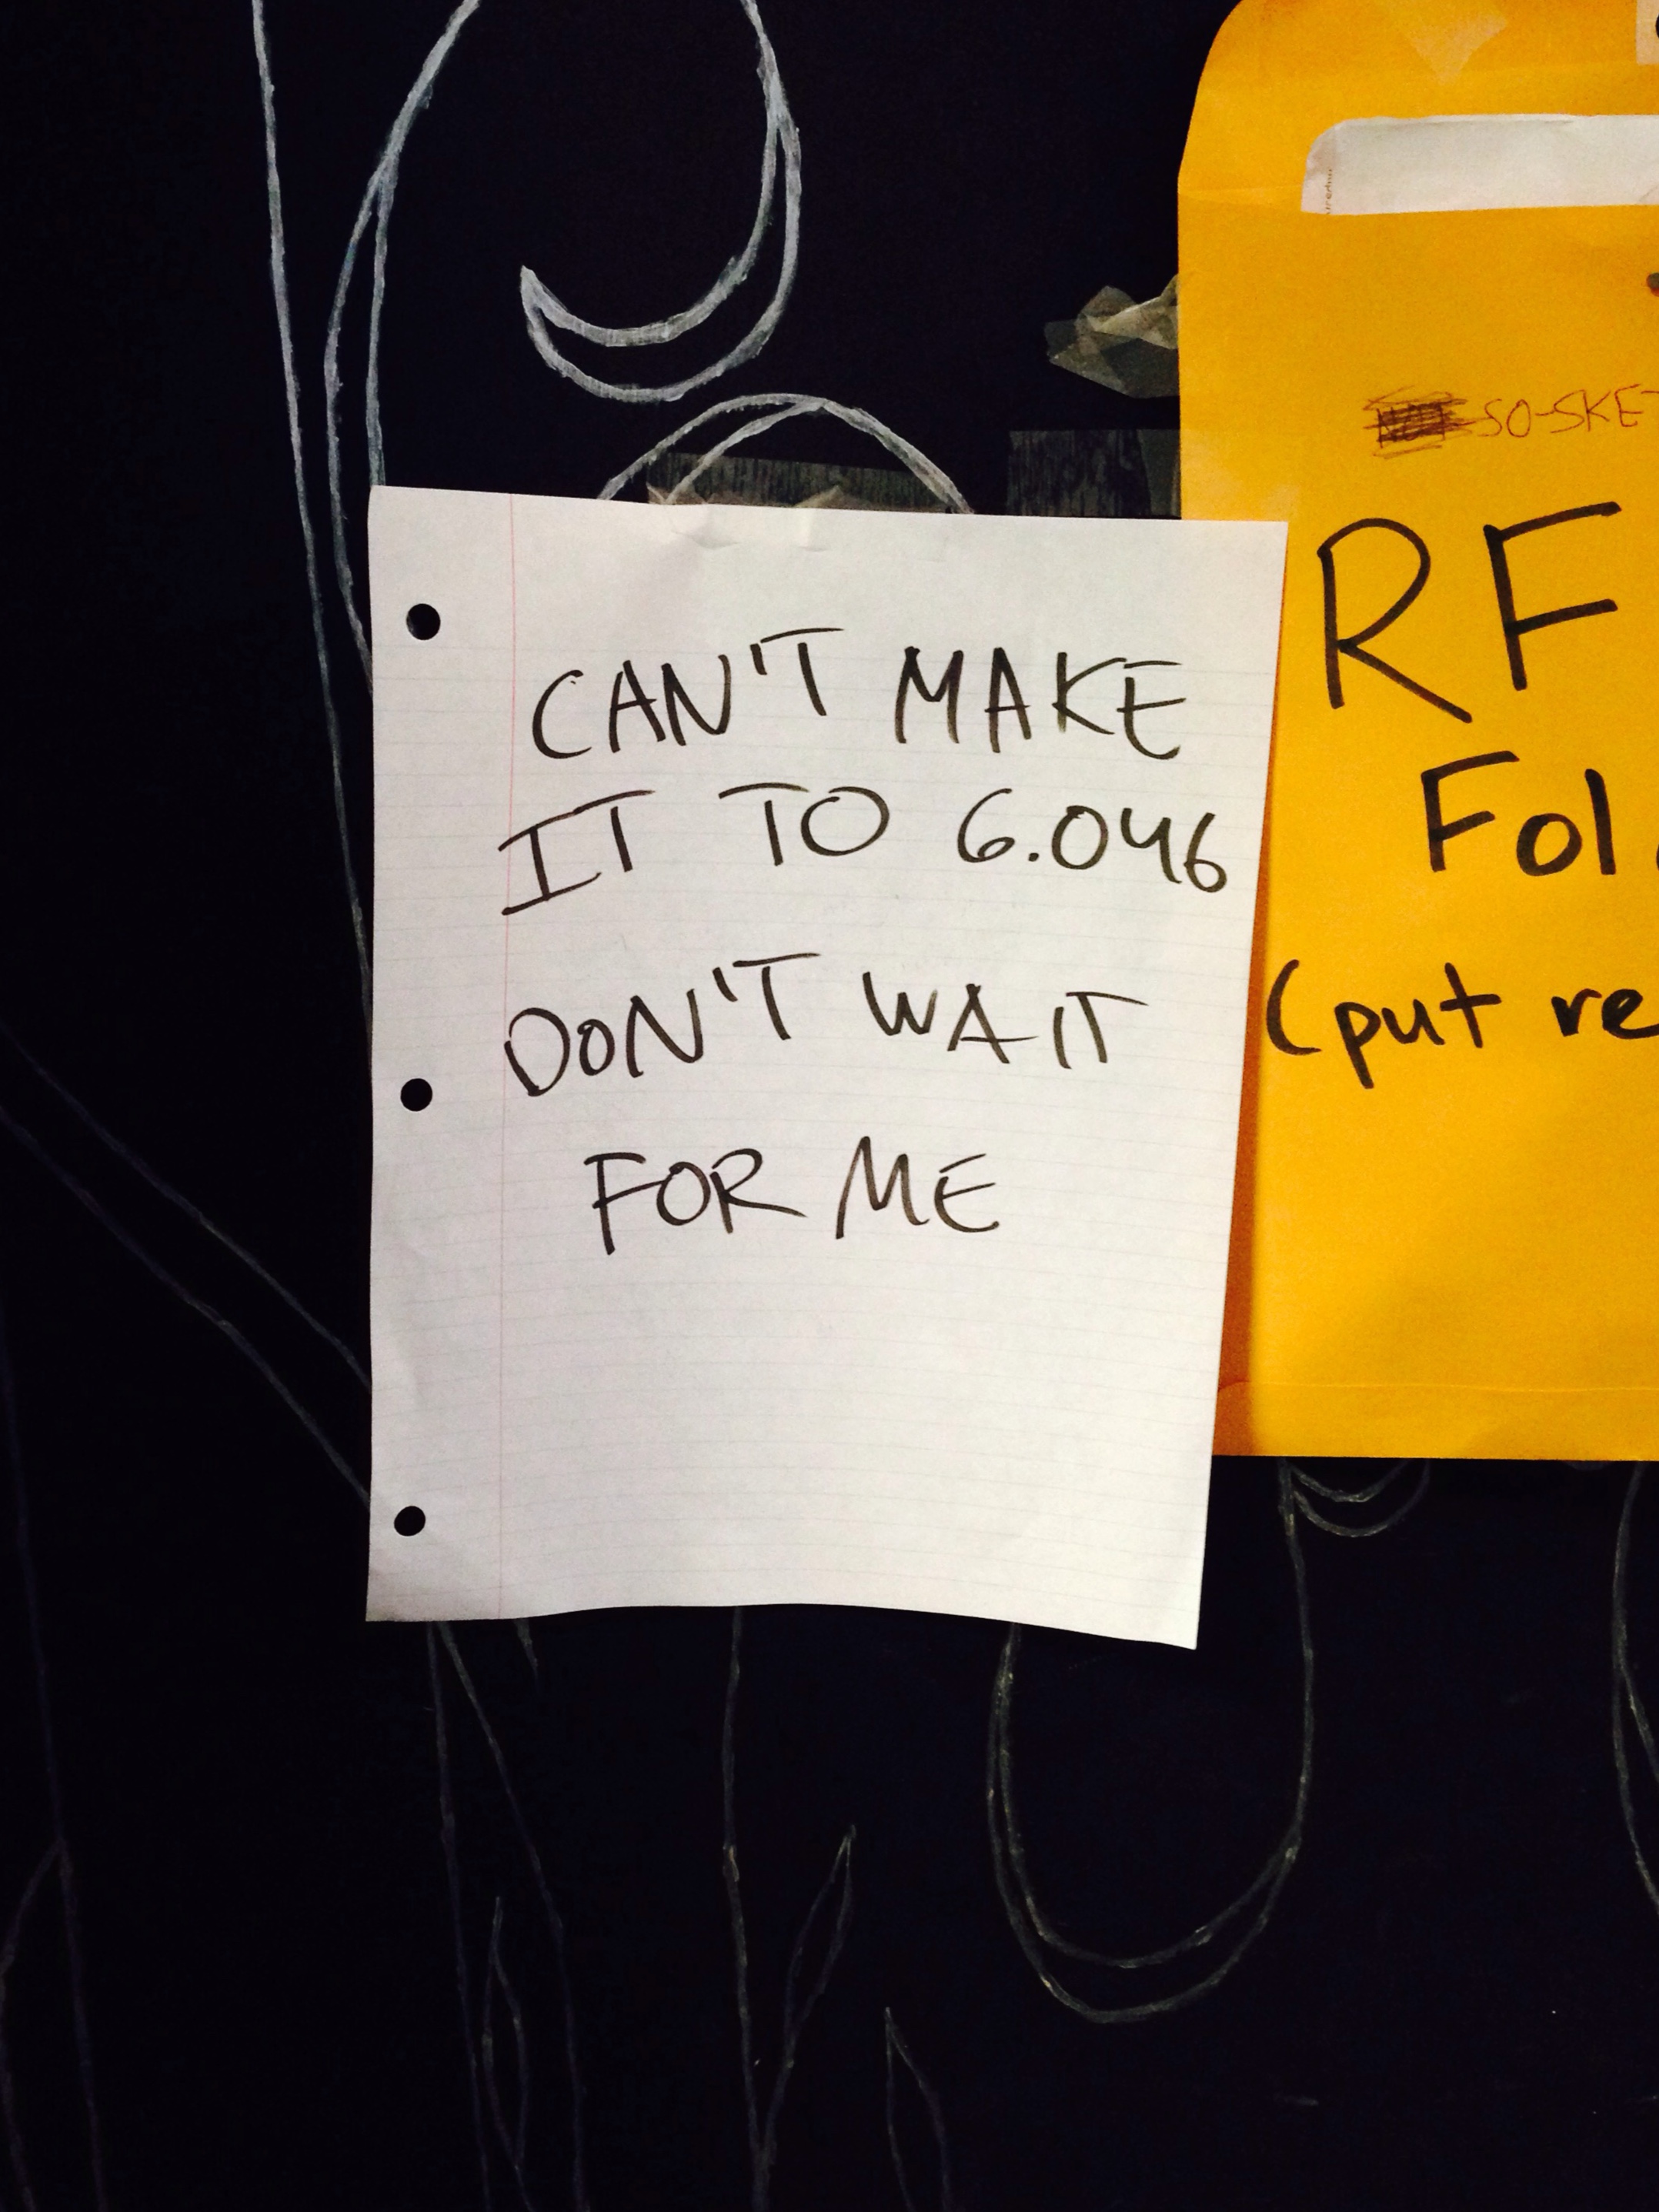 CAN'T MAKE
IT TO 6.046
DON'T WAIT
FOR ME
SO-SKE
RF
Fol
(put re